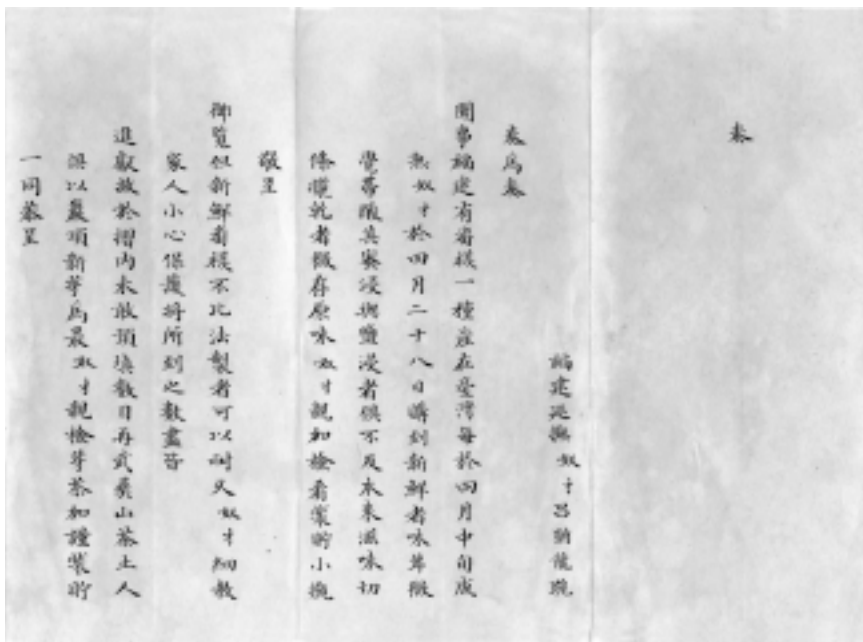 奏
福建巡撫奴才呂猶龍跪
奏為奏
聞事福建有番檨一種產在臺灣每於四月中旬成
熟奴才於四月二十八日購到新鮮者味甘微
覺帶酸其蜜浸與鹽浸者俱不及本來滋味切
條曬乾者微存原味奴才親加檢看裝貯小瓶
敬呈
御覽但新鮮番檨不比法製者可以耐久奴才細教
家人小心保護將所到之數盡皆
進獻故於摺內未敢預填數目再武彞山茶土人
俱以巖頂新芽為最奴才親檢芽茶加謹裝貯
一同恭呈